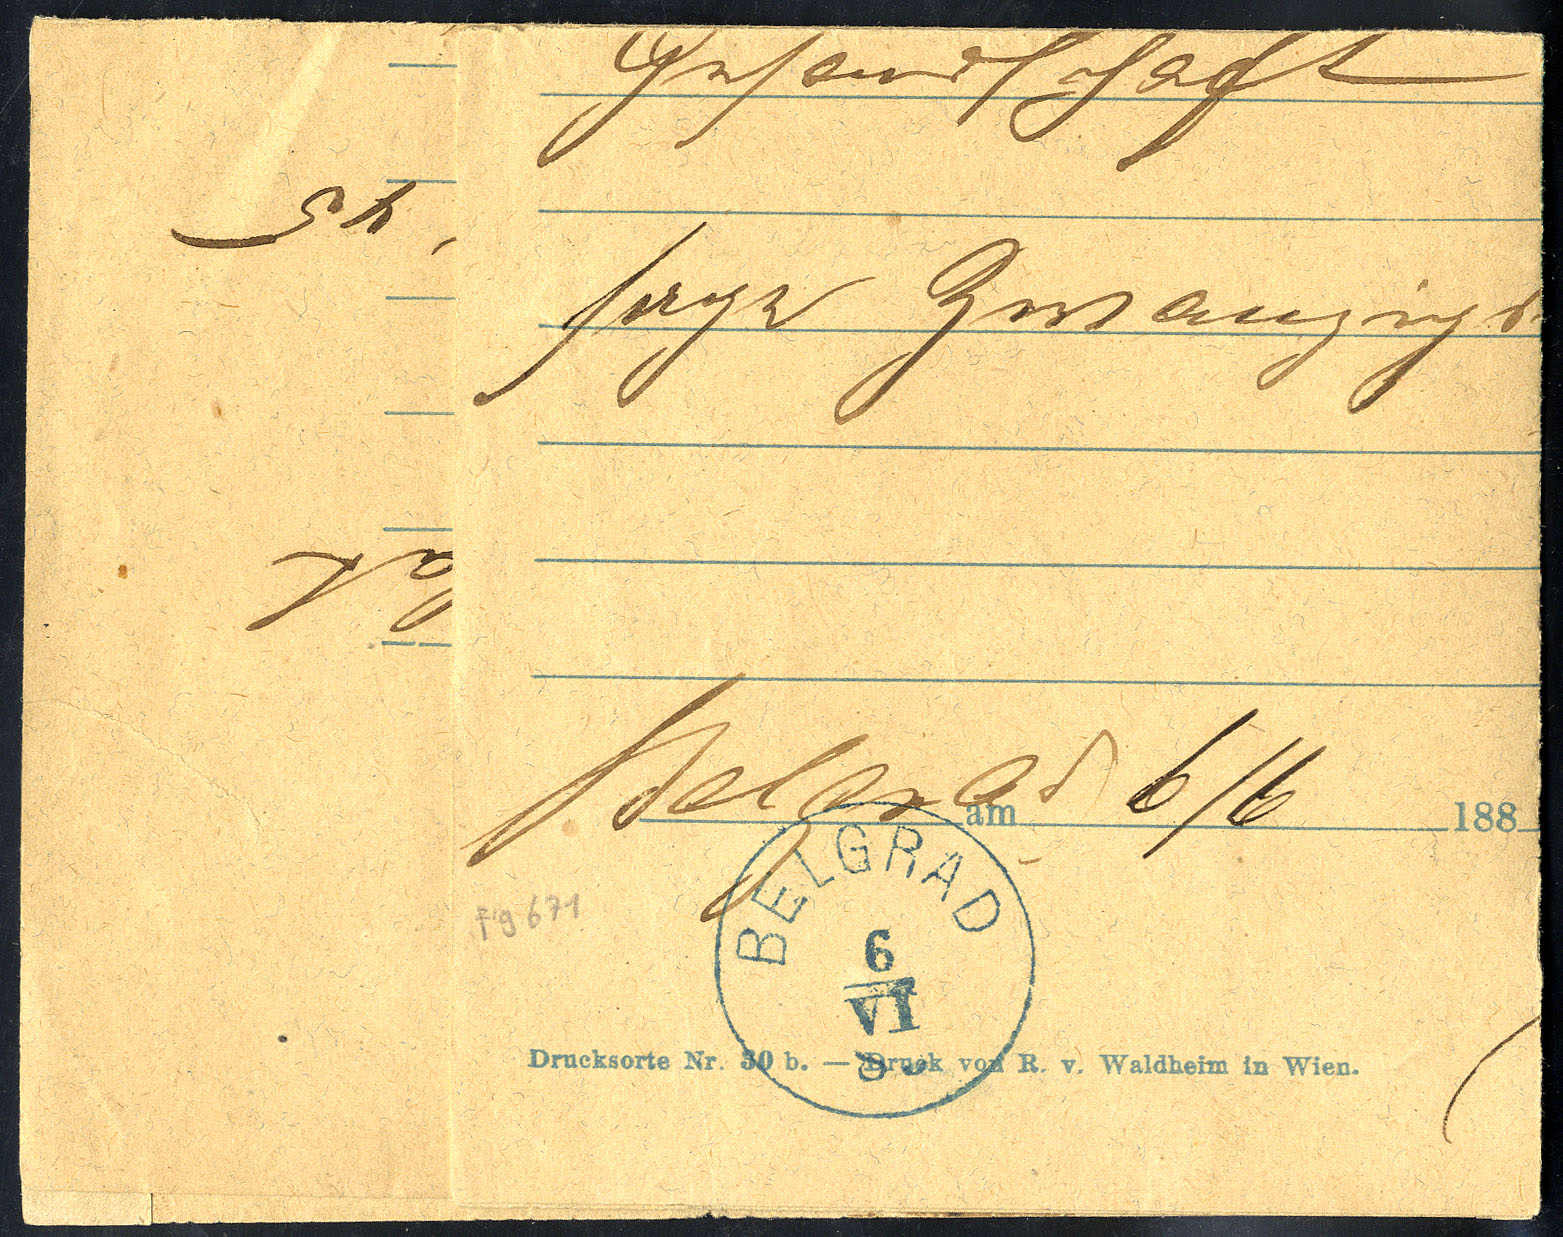 Gesandtschaft
sage Zwanzig
Belgrad am 6/6 188
BELGRAD
6
VI
Fig 671
Drucksorte Nr. 30 b. — Druck von R. v. Waldheim in Wien.